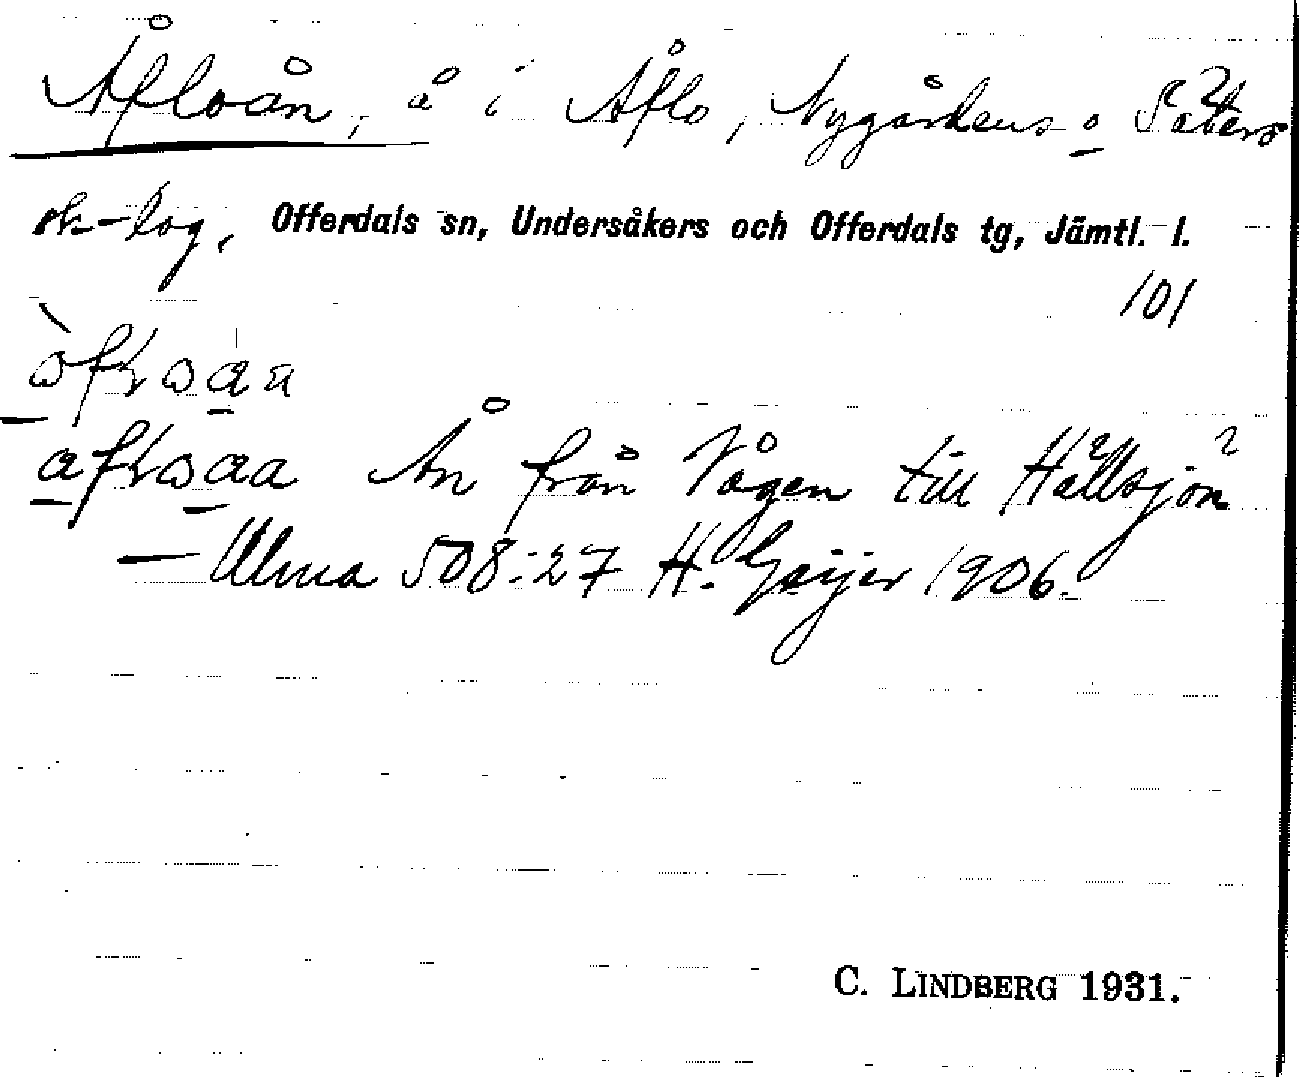 Åfloån, å i Åflo, Nygårdens o Säters
sk-lag, Offerdals sn, Undersåkers och Offerdals tg, Jämtl. l.
101
Ån från Vågen till Hällsjön
— Ulma 508:27 H. Geijer 1906.
C. LINDBERG 1931.